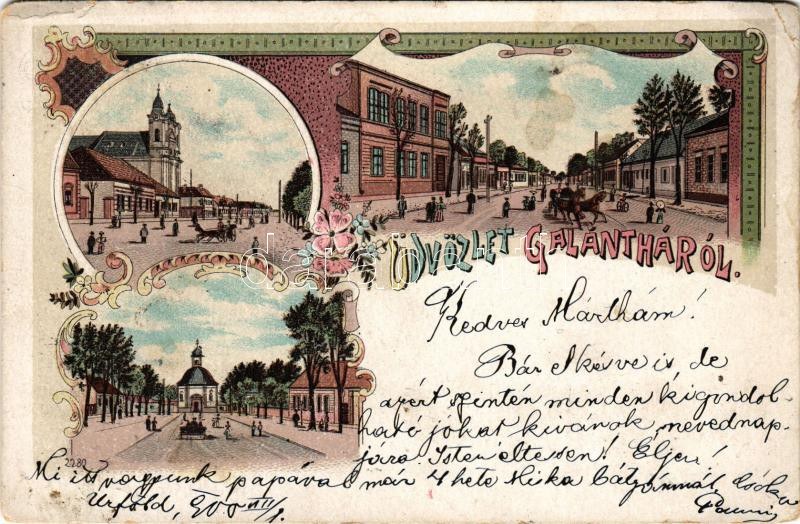 ÜDVÖZLET GALANTHÁRÓL.
Kedves Márthám!
Bár elkésve is, de
azért szintén minden kigondol-
ható jókat kívánok, nevednap-
jára. Isten éltessen! Éljen!
Mi itt vagyunk papával már 4 hete Miska bátyánál, Csóka
Urföld, 900
2280